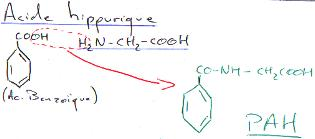 Acide hippurique
COOH H₂N-CH₂-COOH
(Ac. Benzoïque)
CO-NH-CH₂COOH
PAH